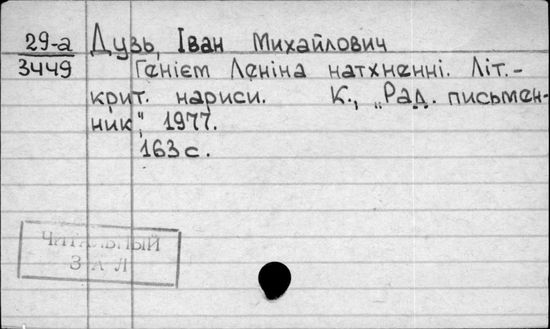 29-а
3449
Дузь, Іван Михайлович
Генієм Леніна натхненні. Літ.-
крит. нариси. К., „Рад. письмен-
ник", 1977.
163 с.
ЧИТАЛЬНЫЙ
ЗАЛ